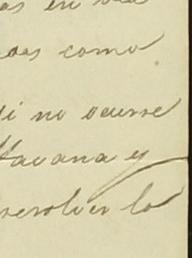 as en una
das como
di no ocurre
Havana y
resolver lo